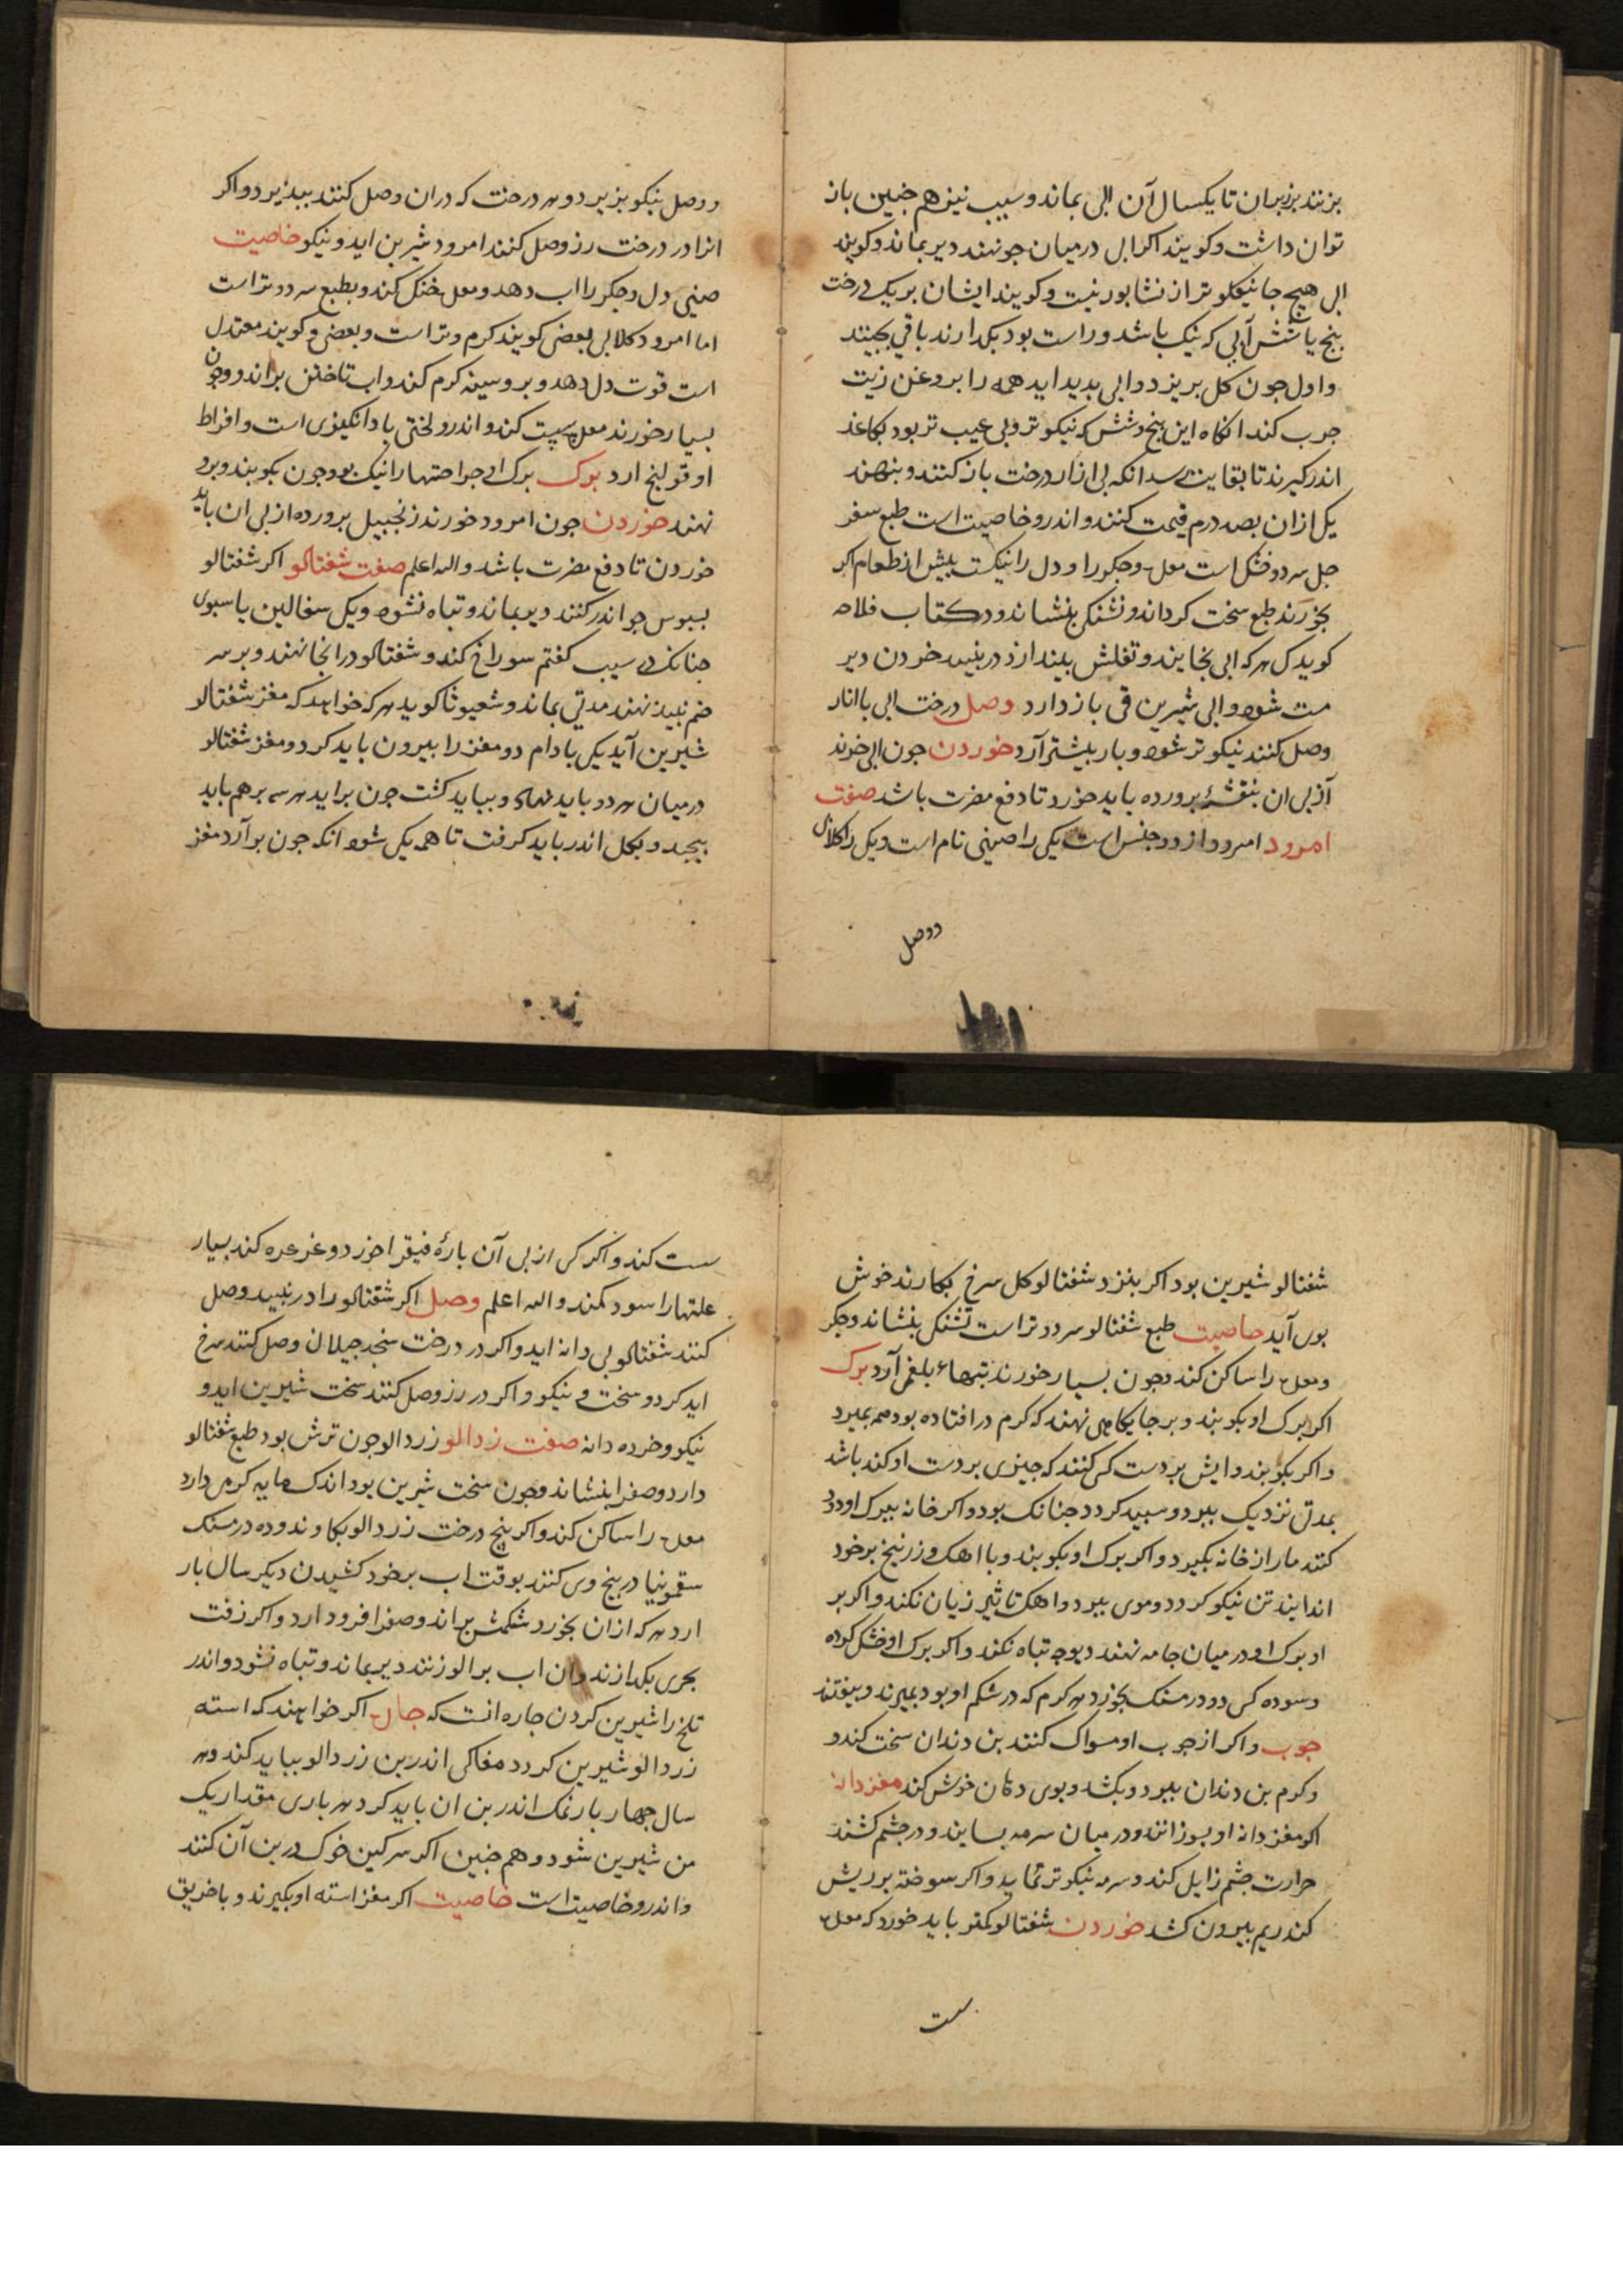 بزنند بزیران تا یکسال آن ابی بماند و سیب نیز هم جنین باز
توان داشت و کویند اکر ابی درمیان جو نهند دیر بماند و کویند
ابی هیچ جا نیکوتر از نشابور نیست و کویند ایشان بر یک درخت
بنج یا شش آبی که نیک باشد و راست بود بکدارند باقی بجینند
و اول جون کل بریزد و ابی بدید اید همه را بروغن زیت
جرب کند انکاه این بنج و شش که نیکوتر و بی عیب تر بود بکاغذ
اندر کیرند تا بغایت رسد انکه بی ازار درخت باز کنند و بنهند
یکی ازان بصد درم قیمت کنند و اندرو خاصیت است طبع سفر
جل سرد و خشک است معده و جکر را و دل را نیکست بیش از طعام اکر
بخورند طبع سخت کرداند و تشنکی بنشاند و در کتاب فلاحه
کوید که هر که ابی بخایند و تفلش بیندازد در نبید خوردن دیر
مست شود و ابی شیرین قی باز دارد وصل درخت ابی با انار
وصل کنند نیکوتر شود و بار بیشتر آرد خوردن جون ابی خورند
از بی ان بنفشهٔ برورده باید خورد تا دفع مضرت باشد صفت
امرود امرود از دو جنس است یکی را صینی نام است و یکی را کلابی
و وصل
و وصل نیکو بزیرد و هر درخت که دران وصل کنند ببذیرد و اکر
انرا در درخت رز وصل کنند امرود شیرین اید و نیکو خاصیت
صینی دل و جکر را اب دهد و معده خنک کند و بطبع سرد و تر است
اما امرود کلابی بعضی کویند کرم و تر است و بعضی کویند معتدل
است قوت دل دهد و بر و سینه کرم کند و اب تاختن براند و جون
بسیار خورند معده سست کند و اندرو لختی باد انکیزی است و افراط
او قولنج ارد برک برک او جراحتها را نیک بود جون بکوبند و برو
نهند خوردن جون امرود خورند زنجبیل برورده از بی ان باید
خوردن تا دفع مضرت باشد والله اعلم صفت شفتالو اکر شفتالو
بسبوس جو اندر کنند دیر بماند و تباه نشود و یکی سفالین یا سبوی
جنانک در سیب کفتم سوراخ کند و شفتالو در انجا نهند و بر سر
خم نبید نهند مدتی بماند و شعیوثا کوید هر که خواهد که مغز شفتالو
شیرین آید یکی بادام دو مغز را بیرون باید کرد و مغز شفتالو
درمیان هر دو باید نهاد و بباید کشت جون براید هر سه برهم باید
بیجید و بکل اندر باید کرفت تا همه یکی شود انکه جون بر آرد مغز
شفتالو شیرین بود اکر بنزد شفتالو کل سرخ بکارند خوش
بوی آید خاصیت طبع شفتالو سرد و تر است تشنکی بنشاند و جکر
و معده را ساکن کند و جون بسیار خورند تبهاء بلغمی آرد برک
اکر برک او بکوبند و بر جایکاهی نهند که کرم در افتاده بود همه بمیرد
و اکر بکوبند و ایش بر دست کسی کنند که جیزی بر دست او کند باشد
بمدتی نزدیک ببرد و سبید کردد جنانک بود و اکر خانه ببرک او دود
کنند ماران خانه بکیرد و اکر برک او بکوبند و با اهک و زرنیخ برخود
اندایند تن نیکو کردد و موی ببرد و اهک تاثیر زیان نکند و اکر بر
او برک او در میان جامه نهند دیوجه تباه نکند و اکر برک او خشک کرده
و سوده کسی دو درمسنک بخورد هر کرم که در شکم او بود بمیرند و بیفتند
جوب و اکر از جوب او مسواک کنند بن دندان سخت کند و
و کرم بن دندان ببرد و بکشد و بوی دهان خوش کند مغز دانه
اکر مغز دانه او بسوزانند و در میان سرمه بسایند و در جشم کشند
حرارت جشم زایل کند و سرمه نیکوتر نماید و اکر سوخته بر ریش
کند ریم بیرون کشد خوردن شفتالو کمتر باید خورد که معده
سست
سست کند و اکر کسی از بی آن بارهٔ فیقرا خورد و غرغره کند بسیار
علتها را سود کند والله اعلم وصل اکر شفتالو را در نبید وصل
کنند شفتالو بی دانه اید و اکر در درخت سنجد جیلان وصل کنند سرخ
اید کرد و سخت و نیکو و اکر در رز وصل کنند سخت شیرین اید و
نیکو و خرده دانه صفت زردالو زردالو جون ترش بود طبع شفتالو
دارد و صفرا بنشاند و جون سخت شیرین بود اندک مایه کرمی دارد
معده را ساکن کند و اکر بیخ درخت زردالو بکاوند و ده درمسنک
سقمونیا در بیخ وی کنند بوقت اب برخود کشیدن دیکر سال بار
ارد هر که ازان بخورد شکمش براند و صفرا فرود ارد و اکر زفت
بحری بکدازند و ان اب بر الو زنند دیر بماند و تباه نشود و اندر
تلخ را شیرین کردن جاره انست که جال اکر خواهند که استه
زردالو شیرین کردد مغاکی اندر بن زردالو بباید کند و هر
سال جهار بار نمک اندر بن ان باید کرد هر باری مقدار یک
من شیرین شود و هم جنین اکر سرکین خوک در بن آن کنند
و اندرو خاصیت است خاصیت اکر مغز استه او بکیرند و با خربق